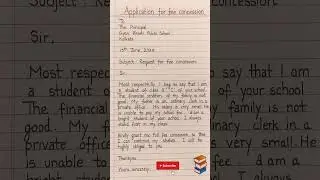 Application for fee concession
To
The Principal
Public School
Kolkata
15th June 20
Subject: Request for fee concession
Sir,
Most respectfully I beg to say that I am
a student of class of your school.
The financial condition of my family is not
good. My father is an ordinary clerk in a
private office. His salary is very small. He
is unable to pay my school fee. I am a
bright student of your school. I always
stand first in my class.
Kindly grant me full fee concession so that
I can continue my studies. I will be
highly obliged to you.
Thankyou.
Yours sincerely,
Subscribe
Sir,
Most respec
to say that I am
a student o
of your school
The financial
my family is
not good. My
ordinary clerk in a
private offic
very small. He
is unable to